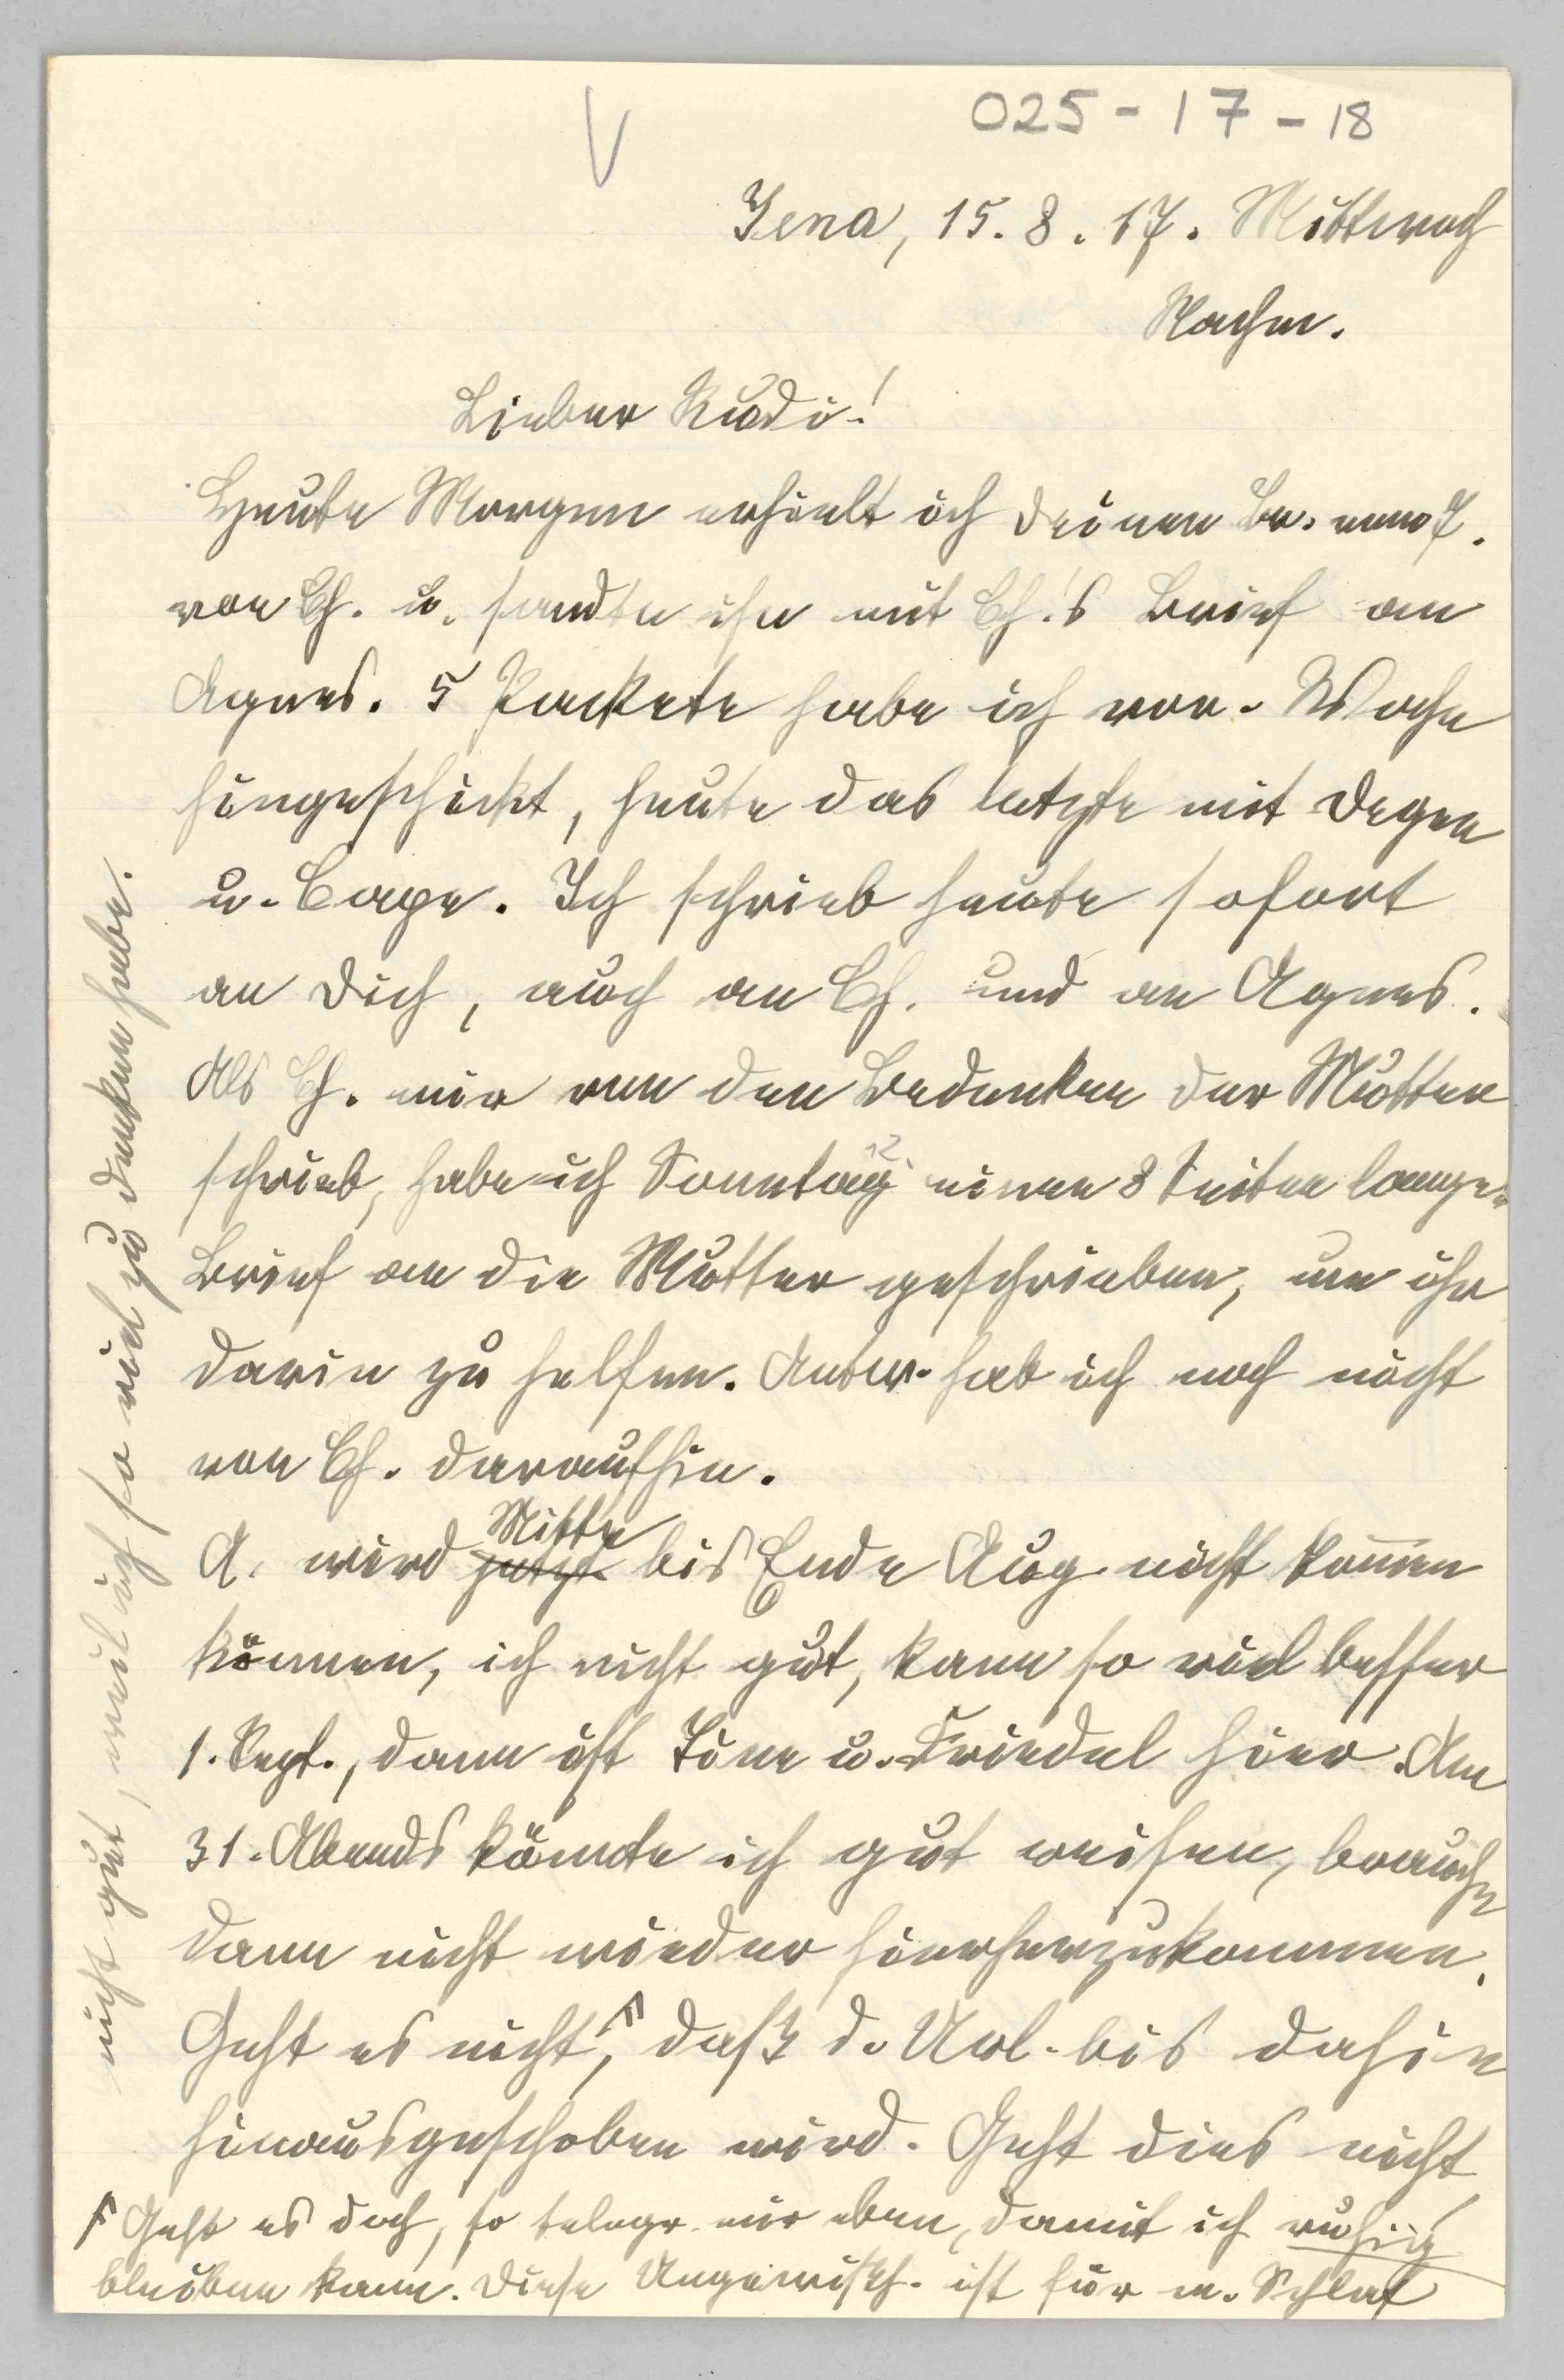 V
025-17-18
Jena, 15.8.17. Mittwoch
Nachm.
Lieber Rudi!
Heute Morgen erhielt ich Deinen Br.
von Ch. u. sandte ihn mit Ch.'s Brief an
Agnes. 5 Packete habe ich vor. Woche
hingeschickt, heute das letzte mit Degen
u. Cape. Ich schrieb heute sofort
an Dich, auch an Ch. und an Agnes.
Als Ch. mir von den Bedenken der Mutter
schrieb, habe ich Sonntag 12 einen 8 Seiten langen
Brief an die Mutter geschrieben, um ihr
darin zu helfen. Antw. hab ich noch nicht
von Ch. daraufhin.
A. wird jetzt Mitte bis Ende Aug. nicht kommen
können, ich nicht gut, kann so viel besser
1. Sept., dann ist Tine u. Friedel hier. Am
31. Abends könnte ich gut reisen, brauche
dann nicht wieder hierherzukommen.
Geht es nicht, daß d. Url. bis dahin
hinausgeschoben wird. Geht dies nicht
Geht es doch, so telegr. mir eben, damit ich ruhig
bleiben kann. Diese Ungewißh. ist für m. Schlaf
nicht gut, weil ich so viel zu denken habe.